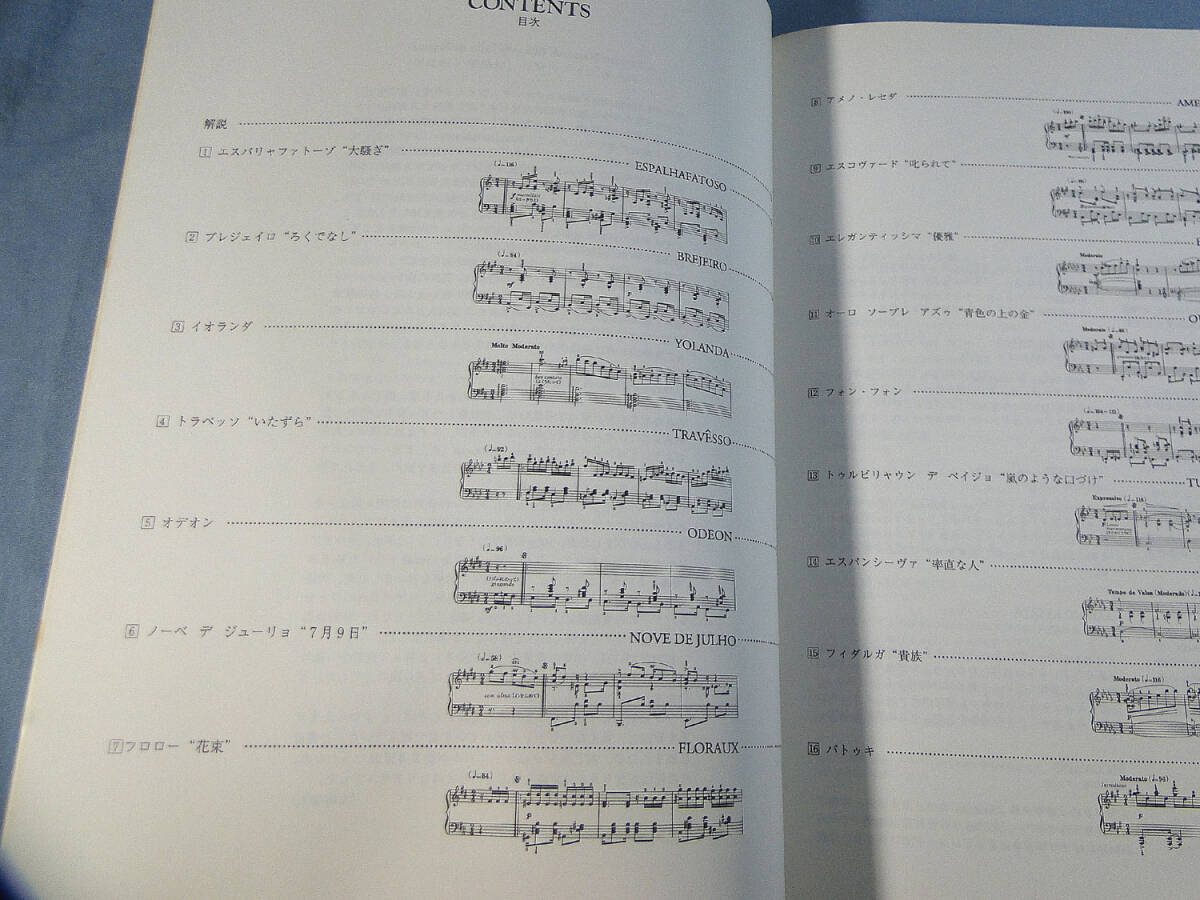 CONTENTS
目次
解説
1 エスパリャファトーゾ “大騒ぎ” ESPALHAFATOSO
(♩=116)
2 ブレジェイロ “ろくでなし” BREJEIRO
(♩=84)
mf
p
3 イオランダ YOLANDA
Molto Moderato
4 トラベッソ “いたずら” TRAVÊSSO
(♩=92)
5 オデオン ODEON
(♩=96)
mf
6 ノーベ デ ジューリョ “7月9日” NOVE DE JULHO
7 フロロー “花束” FLORAUX
(♩=84)
p
8 アメノ・レセダ AME
9 エスコヴァード “叱られて”
10 エレガンティッシマ “優雅”
Moderato
11 オーロ ソーブレ アズゥ “青色の上の金” OU
12 フォン・フォン
13 トゥルビリャウン デ ベイジョ “嵐のような口づけ” TU
Expressivo (♩=116)
14 エスパンシーヴァ “率直な人”
Tempo de Valsa (Moderado)
15 フィダルガ “貴族”
Moderato (♩=116)
16 バトゥキ
Moderato (♩=96)
p